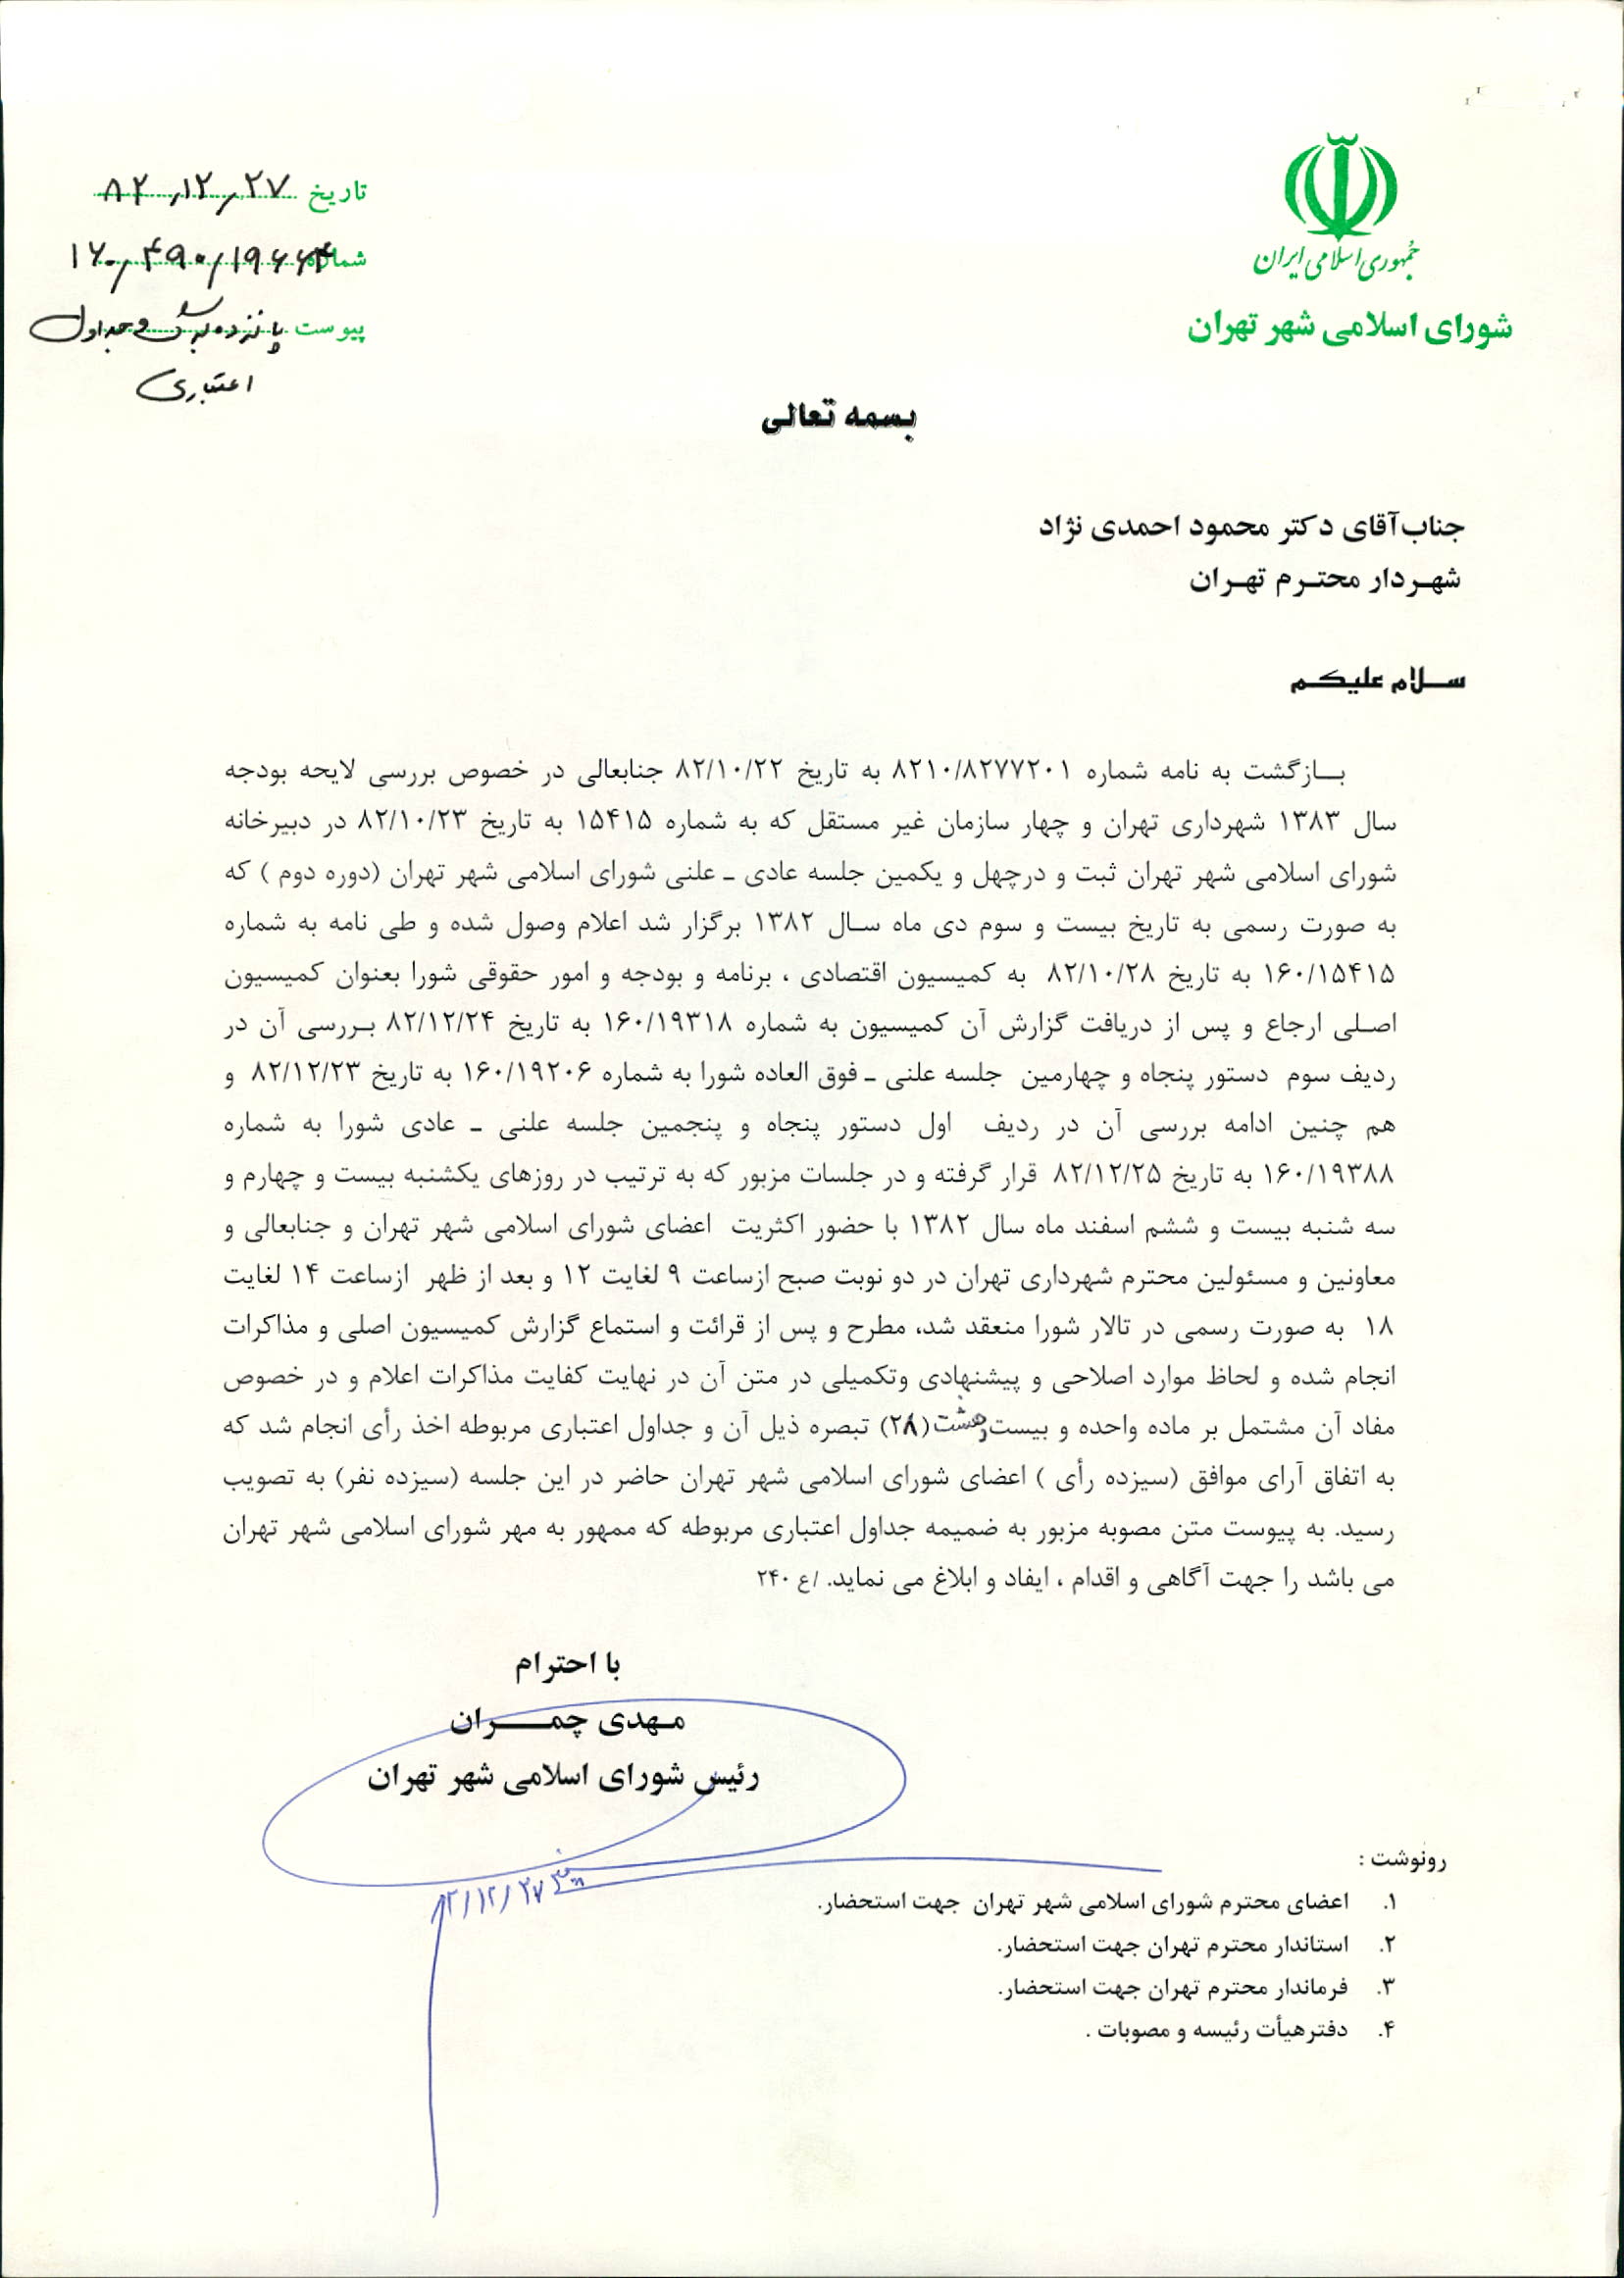 جمهوری اسلامی ایران
شورای اسلامی شهر تهران
تاریخ ۸۲,۱۲,۲۷
شماره ۱۶۰,۴۹۰,۱۹۶۶۴
پیوست پانزده برگ و جداول
اعتباری
بسمه تعالی
جناب آقای دکتر محمود احمدی نژاد
شهردار محترم تهران
سلام علیکم
بازگشت به نامه شماره ۸۲۱۰/۸۲۷۷۲۰۱ به تاریخ ۸۲/۱۰/۲۲ جنابعالی در خصوص بررسی لایحه بودجه
سال ۱۳۸۳ شهرداری تهران و چهار سازمان غیر مستقل که به شماره ۱۵۴۱۵ به تاریخ ۸۲/۱۰/۲۳ در دبیرخانه
شورای اسلامی شهر تهران ثبت و درچهل و یکمین جلسه عادی ـ علنی شورای اسلامی شهر تهران (دوره دوم ) که
به صورت رسمی به تاریخ بیست و سوم دی ماه سال ۱۳۸۲ برگزار شد اعلام وصول شده و طی نامه به شماره
۱۶۰/۱۵۴۱۵ به تاریخ ۸۲/۱۰/۲۸ به کمیسیون اقتصادی ، برنامه و بودجه و امور حقوقی شورا بعنوان کمیسیون
اصلی ارجاع و پس از دریافت گزارش آن کمیسیون به شماره ۱۶۰/۱۹۳۱۸ به تاریخ ۸۲/۱۲/۲۴ بررسی آن در
ردیف سوم دستور پنجاه و چهارمین جلسه علنی ـ فوق العاده شورا به شماره ۱۶۰/۱۹۲۰۶ به تاریخ ۸۲/۱۲/۲۳ و
هم چنین ادامه بررسی آن در ردیف اول دستور پنجاه و پنجمین جلسه علنی ـ عادی شورا به شماره
۱۶۰/۱۹۳۸۸ به تاریخ ۸۲/۱۲/۲۵ قرار گرفته و در جلسات مزبور که به ترتیب در روزهای یکشنبه بیست و چهارم و
سه شنبه بیست و ششم اسفند ماه سال ۱۳۸۲ با حضور اکثریت اعضای شورای اسلامی شهر تهران و جنابعالی و
معاونین و مسئولین محترم شهرداری تهران در دو نوبت صبح ازساعت ۹ لغایت ۱۲ و بعد از ظهر ازساعت ۱۴ لغایت
۱۸ به صورت رسمی در تالار شورا منعقد شد، مطرح و پس از قرائت و استماع گزارش کمیسیون اصلی و مذاکرات
انجام شده و لحاظ موارد اصلاحی و پیشنهادی وتکمیلی در متن آن در نهایت کفایت مذاکرات اعلام و در خصوص
مفاد آن مشتمل بر ماده واحده و بیست وهشت (۲۸) تبصره ذیل آن و جداول اعتباری مربوطه اخذ رأی انجام شد که
به اتفاق آرای موافق (سیزده رأی ) اعضای شورای اسلامی شهر تهران حاضر در این جلسه (سیزده نفر) به تصویب
رسید. به پیوست متن مصوبه مزبور به ضمیمه جداول اعتباری مربوطه که ممهور به مهر شورای اسلامی شهر تهران
می باشد را جهت آگاهی و اقدام ، ایفاد و ابلاغ می نماید. /ع ۲۴۰
با احترام
مهدی چمران
رئیس شورای اسلامی شهر تهران
۸۲/۱۲/۲۷
رونوشت :
۱. اعضای محترم شورای اسلامی شهر تهران جهت استحضار.
۲. استاندار محترم تهران جهت استحضار.
۳. فرماندار محترم تهران جهت استحضار.
۴. دفترهیأت رئیسه و مصوبات .